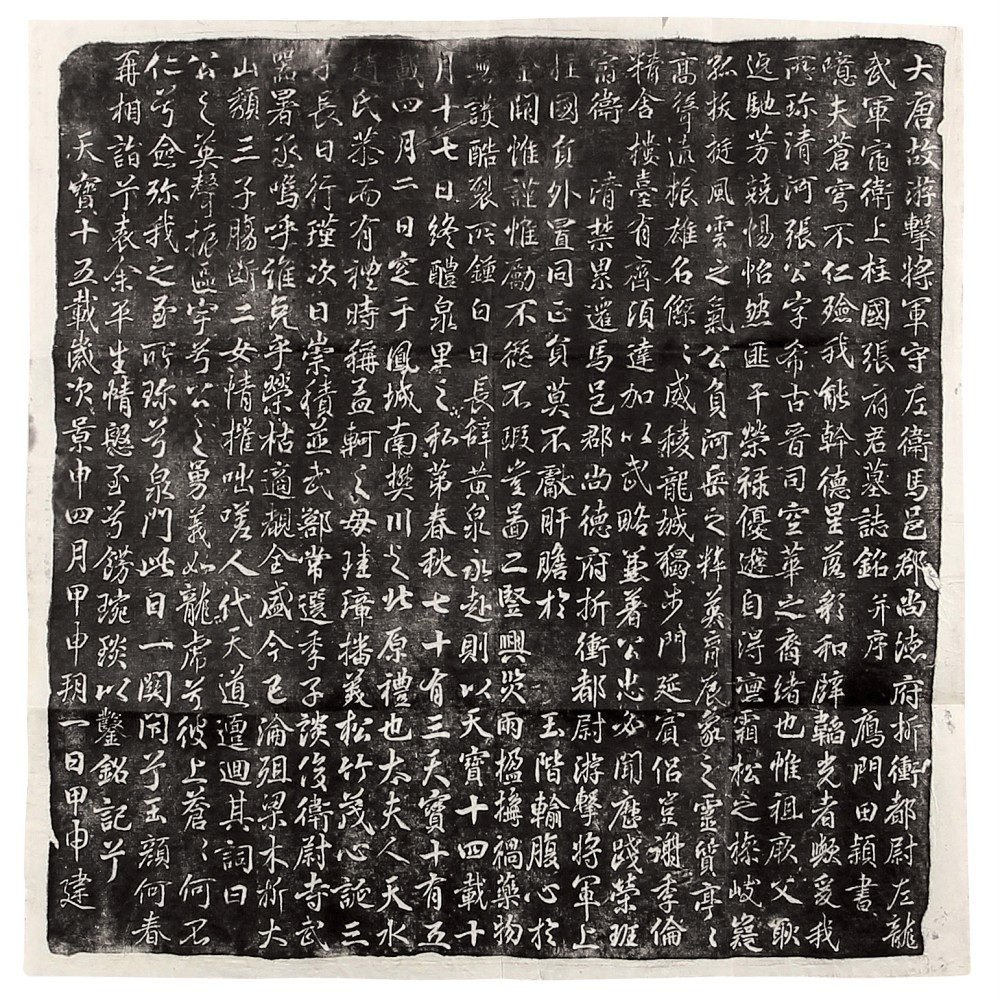 大唐故游擊將軍守左衛馬邑郡尚德府折衝都尉左龍
武軍宿衛上柱國張府君墓誌銘并序 鴈門田穎書
噫夫蒼穹不仁殮我能幹德星落彩和璧韜光者歟爰我
府珎清河張公字希古晉司空華之裔緒也惟祖厥父耿
逸馳芳兢惕怡然匪干榮祿優遊自得凜霜松之操岐嶷
孤拔挺風雲之氣公負河岳之粹英育辰象之靈質亭〻
高聳流振雄名傑〻威稜龍城獨步門延賓侶豈謝季倫
精舍樓臺有齊須達加以武略兼著公忠必聞歷踐榮班
宿衛 清禁累遷馬邑郡尚德府折衝都尉游擊將軍上
柱國員外置同正員莫不獻肝膽於 玉階輸腹心於
金闕惟謹惟勵不愆不瑕豈啚二竪興災兩楹搆禍藥物
無護酷裂所鍾白日長辭黃泉永赴則以天寶十四載十
月十七日終醴泉里之私第春秋七十有三天寶十有五
載四月二日窆于鳳城南樊川之北原禮也太夫人天水
趙氏恭而有禮時稱孟軻之母珪璋播義松竹茂心誕三
子長日行瑾次日崇積並武部常選季子談俊衛尉寺武
器署丞嗚呼誰免乎榮枯適覩全盛今已淪殂梁木斫大
山頹三子腸斷三女情摧咄嗟人代天道邅迴其詞曰
公之英聲振區宇兮公之勇義如龍虎兮彼上蒼〻何不
仁兮殮珎我之至所珎兮泉門此日一闕閇兮玉顏何春
再相詣兮哀余平生情慇至兮鐫琬琰以鑿銘記兮
天寶十五載歲次景申四月甲申朔一日甲申建